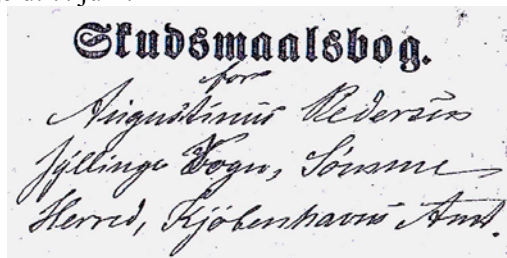 Skudsmaalsbog.
for
Augustinus Pedersen
Jyllinge Sogn, Sømme
Herred, Kjøbenhavns Amt.